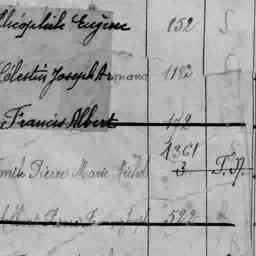 Théophile Eugène 152 S
Célestin Joseph Armand 1182
Francis Albert 172
1361
Emile Pierre Marie Michel 3 T.N.
522